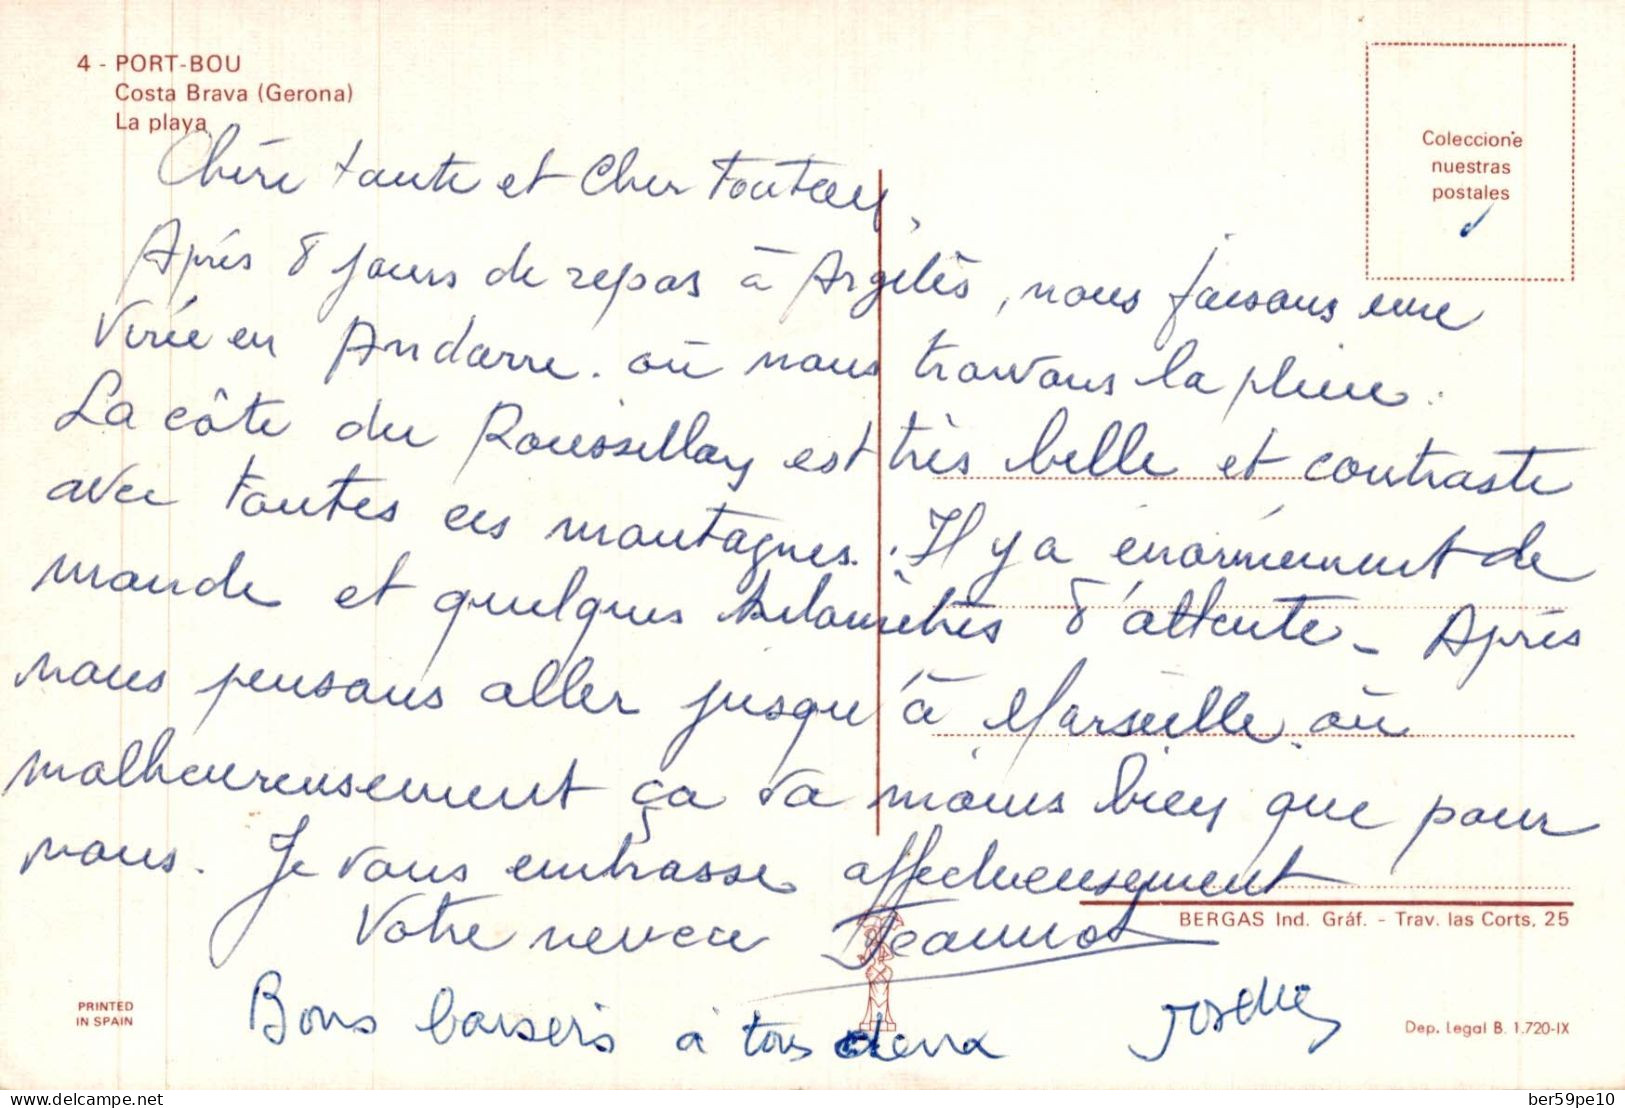 4 - PORT-BOU
Costa Brava (Gerona)
La playa
Coleccione
nuestras
postales
Chère tante et Cher Tonton,
Après 8 jours de repos à Argelès, nous faisons une
virée en Andorre. où nous trouvons la pluie.
La côte du Roussillon est très belle et contraste
avec toutes ces montagnes. Il y a énormément de
monde et quelques kilomètres d'attente - Après
nous pensons aller jusqu'à Marseille où
malheureusement ça va moins bien que pour
nous. Je vous embrasse affectueusement
Votre neveu Jeannot
BERGAS Ind. Gráf. - Trav. las Corts, 25
Bons baisers à tous deux
PRINTED
IN SPAIN
Dep. Legal B. 1.720-IX
delcampe.net
ber59pe10